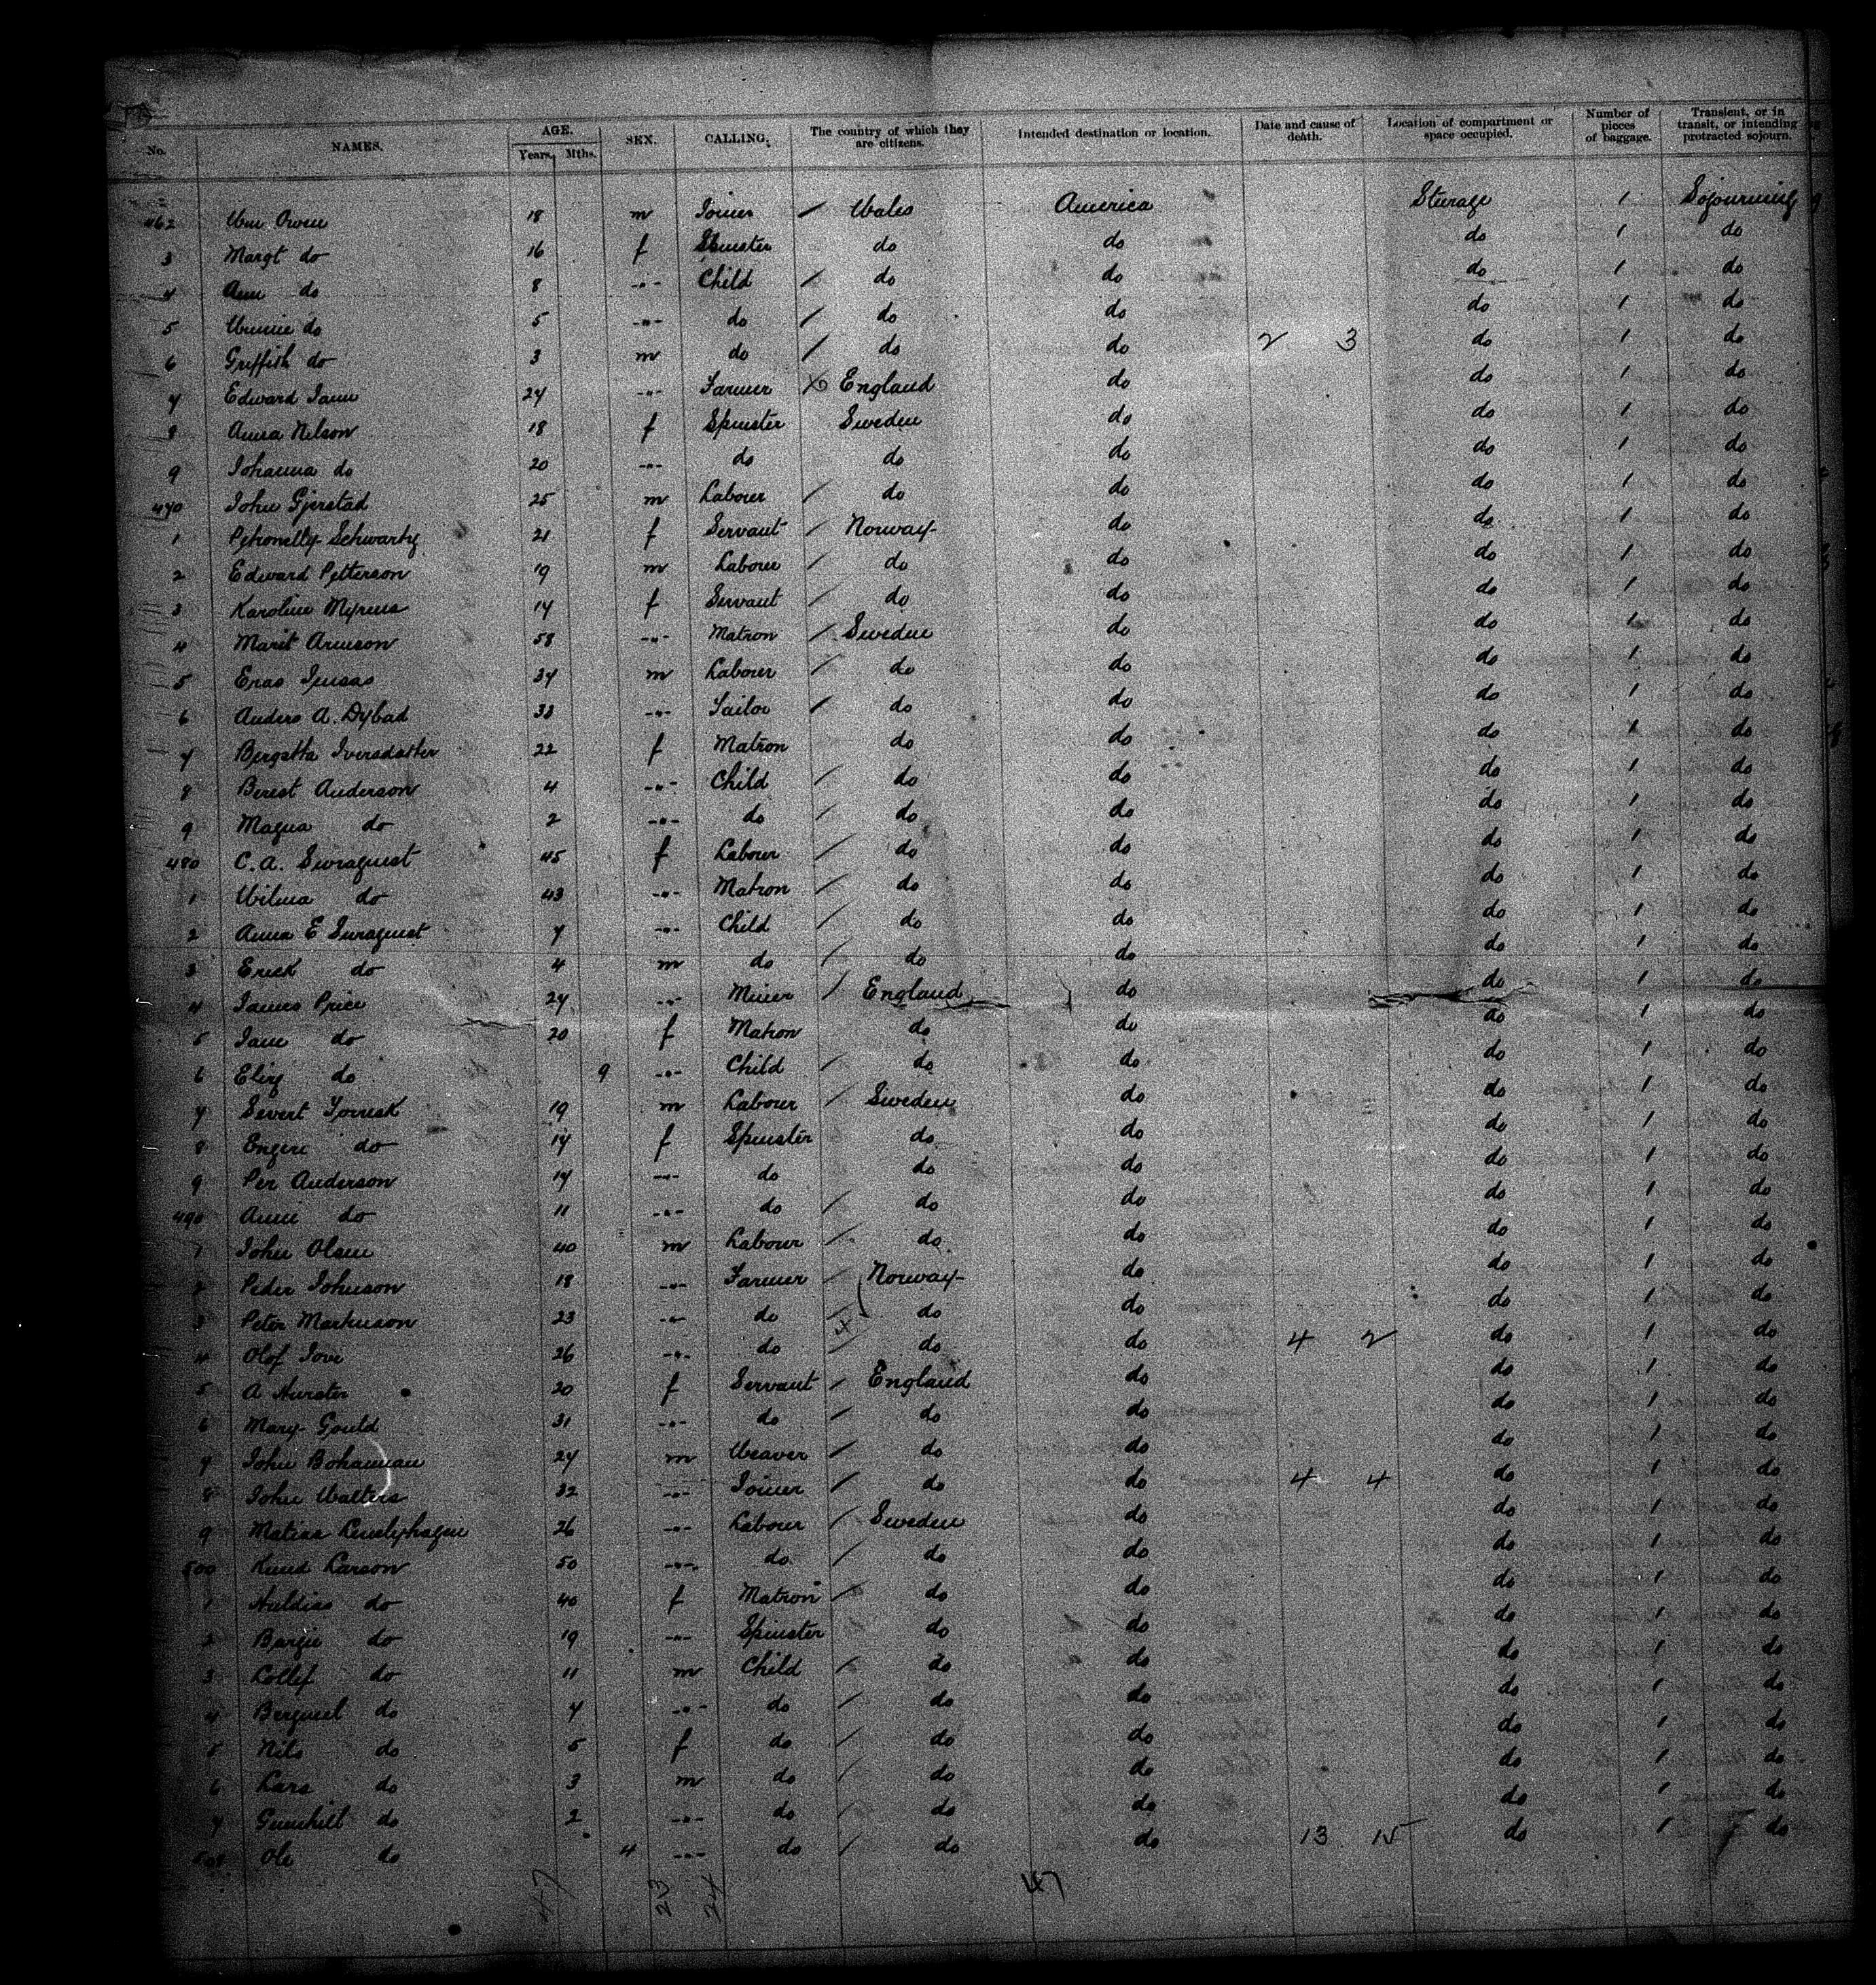 No. NAMES. AGE. Years. Mths. SEX. CALLING. The country of which they are citizens. Intended destination or location. Date and cause of death. Location of compartment or space occupied. Number of pieces of baggage. Transient, or in transit, or intending protracted sojourn.
462 Wm Owen 18 m Joiner Wales America Sturage 1 Sojourning
3 Margt do 16 f Spinster do do do 1 do
4 Ann do 8 -"- Child do do do 1 do
5 Winnie do 5 -"- do do do do 1 do
6 Griffith do 3 m do do do 2 3 do 1 do
7 Edward Jann 24 -"- Farmer England do do 1 do
8 Anna Nelson 18 f Spinster Sweden do do 1 do
9 Johanna do 20 -"- do do do do 1 do
470 John Gjerstad 25 m Labourer do do do 1 do
1 Schwartz 21 f Servant Norway do do 1 do
2 Edward Petterson 19 m Labourer do do do 1 do
3 Karoline Myrens 17 f Servant do do do 1 do
4 Marit Arneson 58 -"- Matron Sweden do do 1 do
5 34 m Labourer do do do 1 do
6 Anders A. Dybad 33 -"- do do do 1 do
7 Bergetta Iversdatter 22 f Matron do do do 1 do
8 Berest Anderson 4 -"- Child do do do 1 do
9 Magna do 2 -"- do do do do 1 do
480 C. A. 45 f Labour do do do 1 do
1 Wilma do 43 -"- Matron do do do 1 do
2 Anna E 7 -"- Child do do do 1 do
3 Erick do 4 m do do do do 1 do
4 James Price 24 -"- Miner England do do 1 do
5 Jane do 20 f Matron do do do 1 do
6 Eliz do 9 -"- Child do do do 1 do
7 Sivert 19 m Labour Sweden do do 1 do
8 Engeri do 17 f Spinster do do do 1 do
9 Per Anderson 17 -"- do do do do 1 do
490 Anne do 11 -"- do do do do 1 do
1 John Olsen 40 m Labour do do do 1 do
2 Peder Johnson 18 -"- Farmer Norway do do 1 do
3 Peter Markuson 23 -"- do do do do 1 do
4 Olof 26 -"- do do do 4 2 do 1 do
5 A 20 f Servant England do do 1 do
6 Mary Gould 31 -"- do do do do 1 do
7 John Bohannan 24 m Weaver do do do 1 do
8 John Walters 32 -"- Joiner do do 4 4 do 1 do
9 Matias 26 -"- Labour Sweden do do 1 do
500 Knud Larson 50 -"- do do do do 1 do
1 do 40 f Matron do do do 1 do
2 do 19 -"- Spinster do do do 1 do
3 do 11 m Child do do do 1 do
4 do 7 -"- do do do do 1 do
5 Nils do 5 f do do do do 1 do
6 Lars do 3 m do do do do 1 do
7 Gunhild do 2 -"- do do do do 1 do
508 Ole do 4 -"- do do do 13 15 do 1 do
47 23 24 47